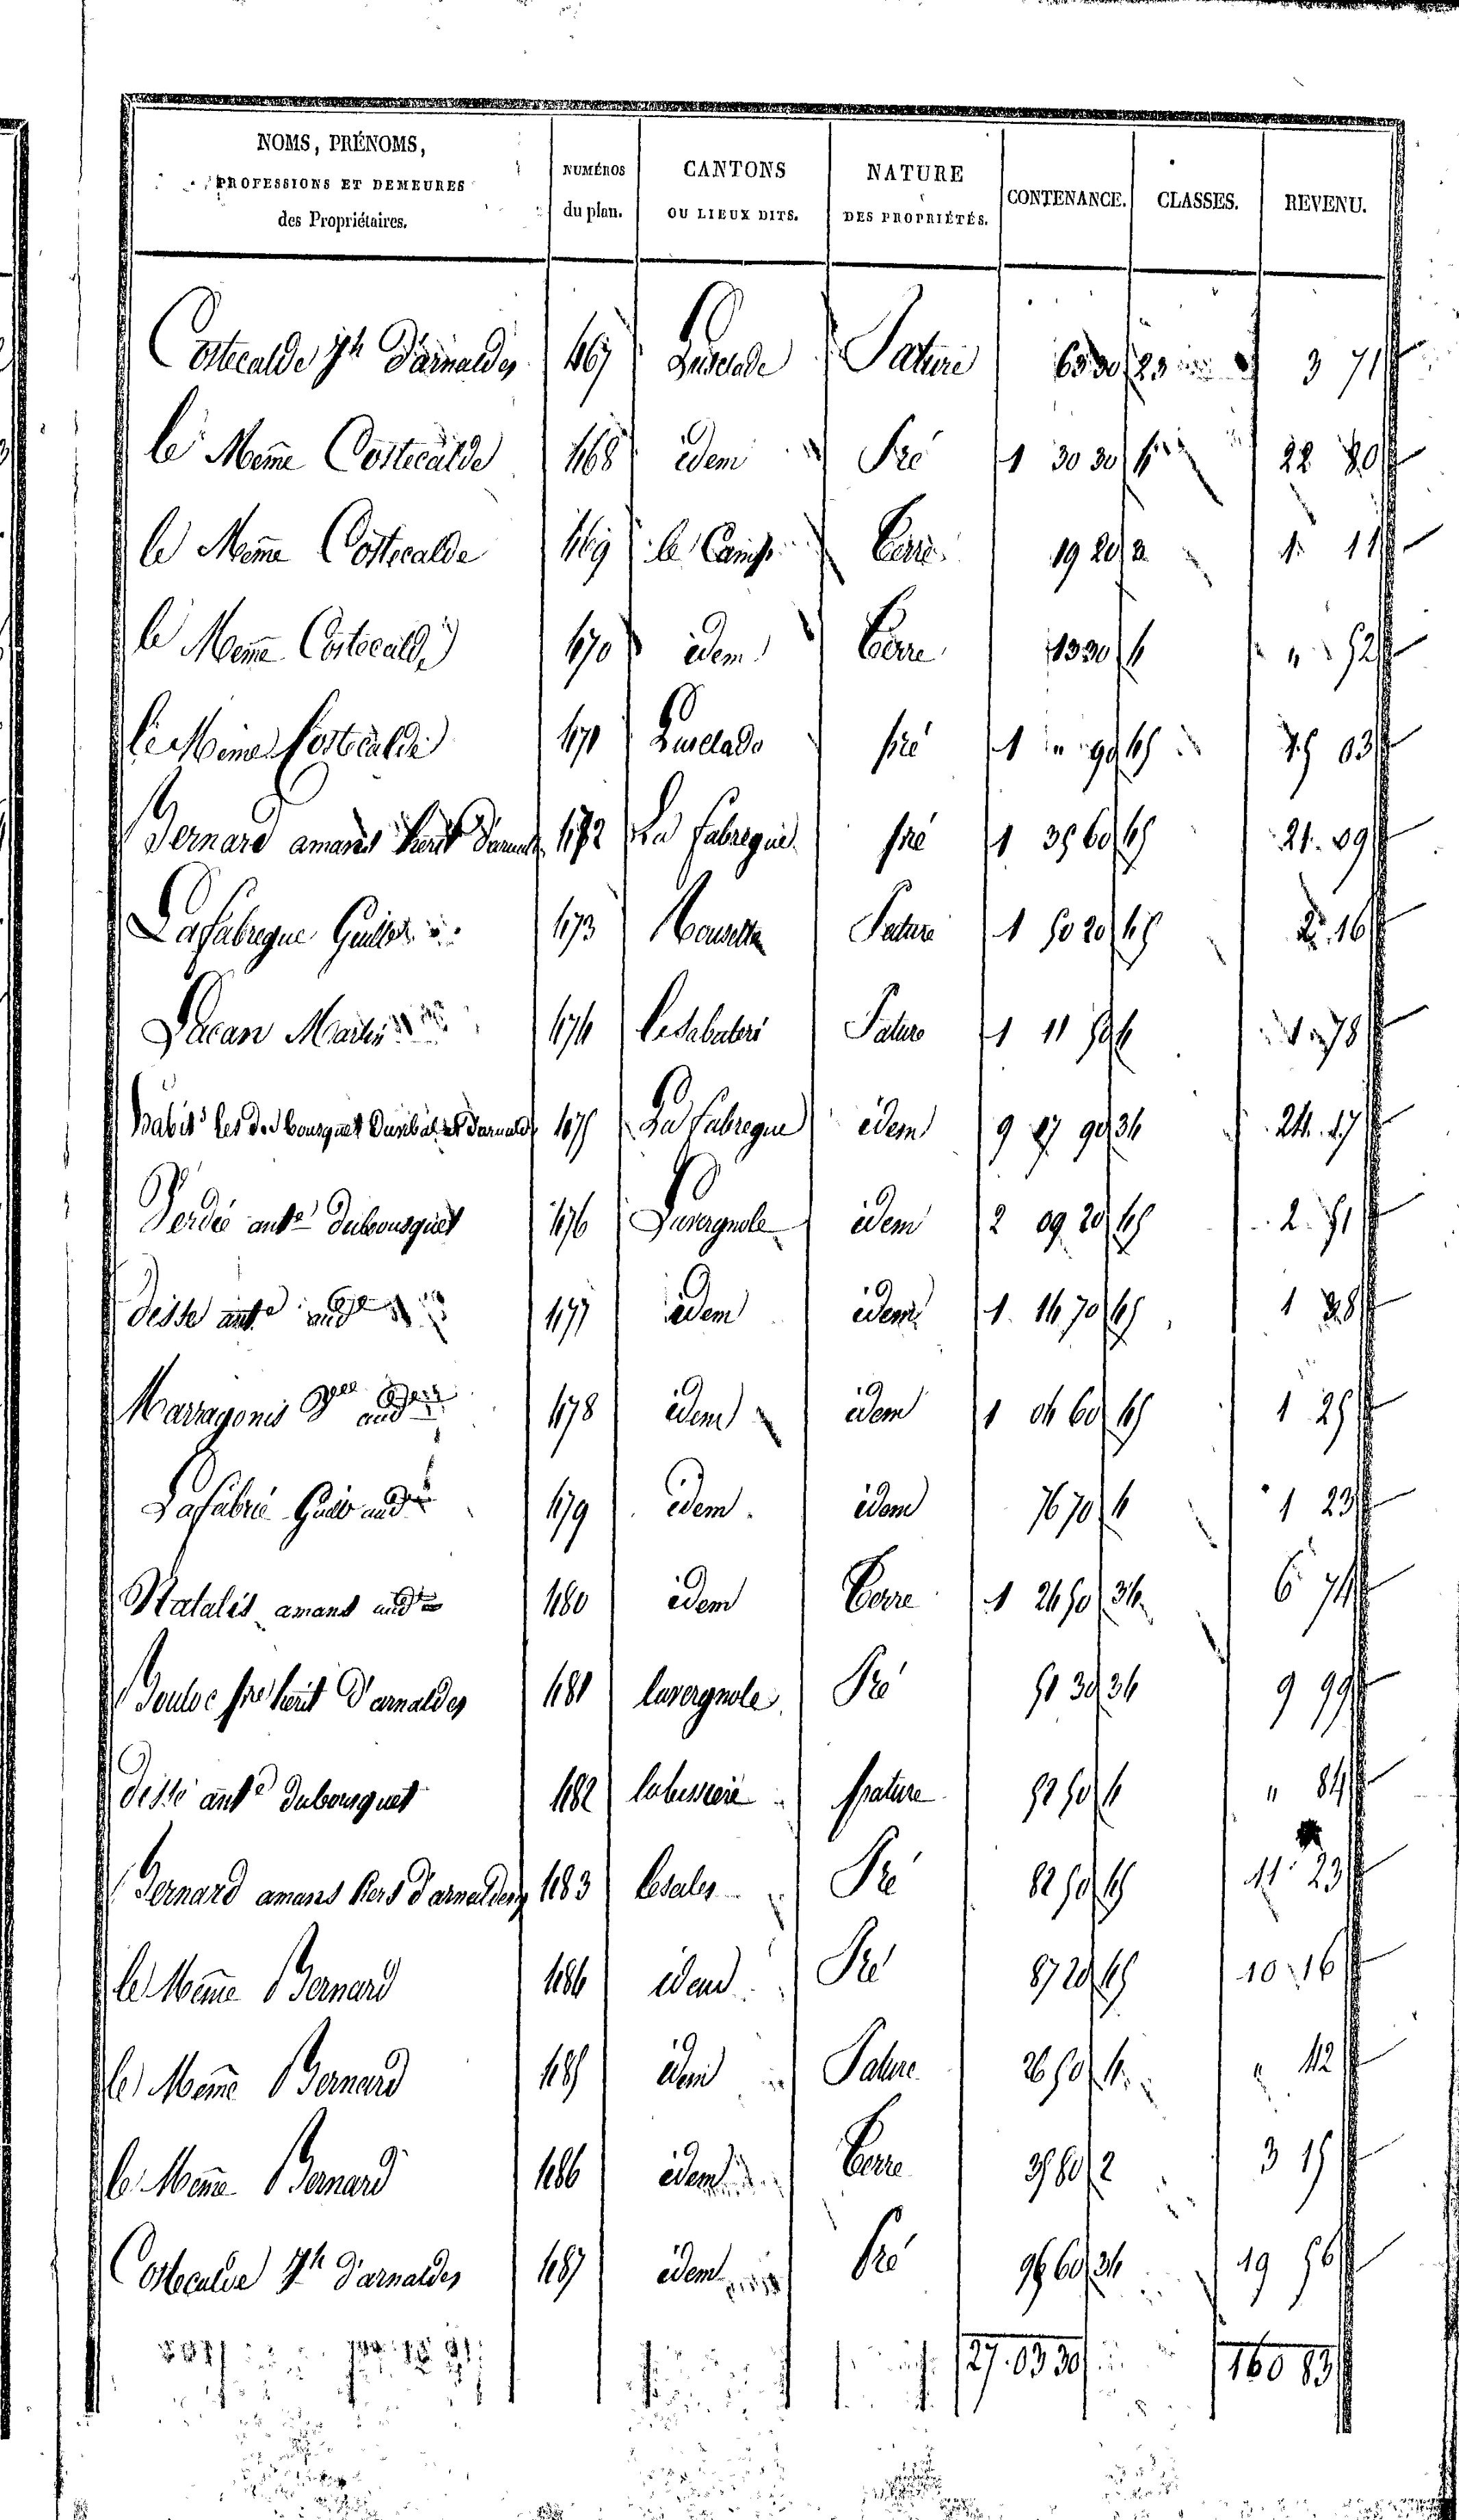 NOMS, PRÉNOMS, PROFESSIONS ET DEMEURES des Propriétaires. NUMÉROS du plan. CANTONS OU LIEUX DITS. NATURE DES PROPRIÉTÉS. CONTENANCE. CLASSES. REVENU.
Costecalde Jh D'arnaldes 467 Pature 23 3 71
le Meme Costecalde 468 idem Pré 1 30 30 4 22 80
le Meme Costecalde 469 le Camp Terre 19 20 2 1 11
le Meme Costecalde 470 idem Terre 13 30 4 " 52
le Meme Costecalde 471 pré 1 " 90 45 15 03
Bernard amans 472 La fabregue pré 1 35 60 45 21 09
Lafabregue 473 Pature 1 50 20 45 2 16
Lacan Martin 474 Pature 1 11 50 4 1 78
habits les de bousquet et 475 La fabregue idem 9 87 90 34 24 17
Verdié ant.e dubousquet 476 Lavergnole idem 2 09 20 45 2 51
disse ant.e aud 477 idem idem 1 14 70 45 1 38
Marragonis aud 478 idem idem 1 04 60 45 1 25
aud 479 idem idem 76 70 4 1 23
Natalis amans aud 480 idem Terre 1 24 50 34 6 74
Bouloc d'arnaldes 481 lavergnole Pré 51 30 34 9 99
disse ant.e dubousquet 482 pature 52 50 4 " 84
Bernard amans d'arnaldes 483 Pré 82 50 45 11 23
le Meme Bernard 484 idem Pré 87 20 45 10 16
le Meme Bernard 485 idem Pature 26 50 4 " 42
le Meme Bernard 486 idem Terre 35 80 2 3 15
Costecalde Jh d'arnaldes 487 idem Pré 96 60 34 19 56
27.03 30 160 83